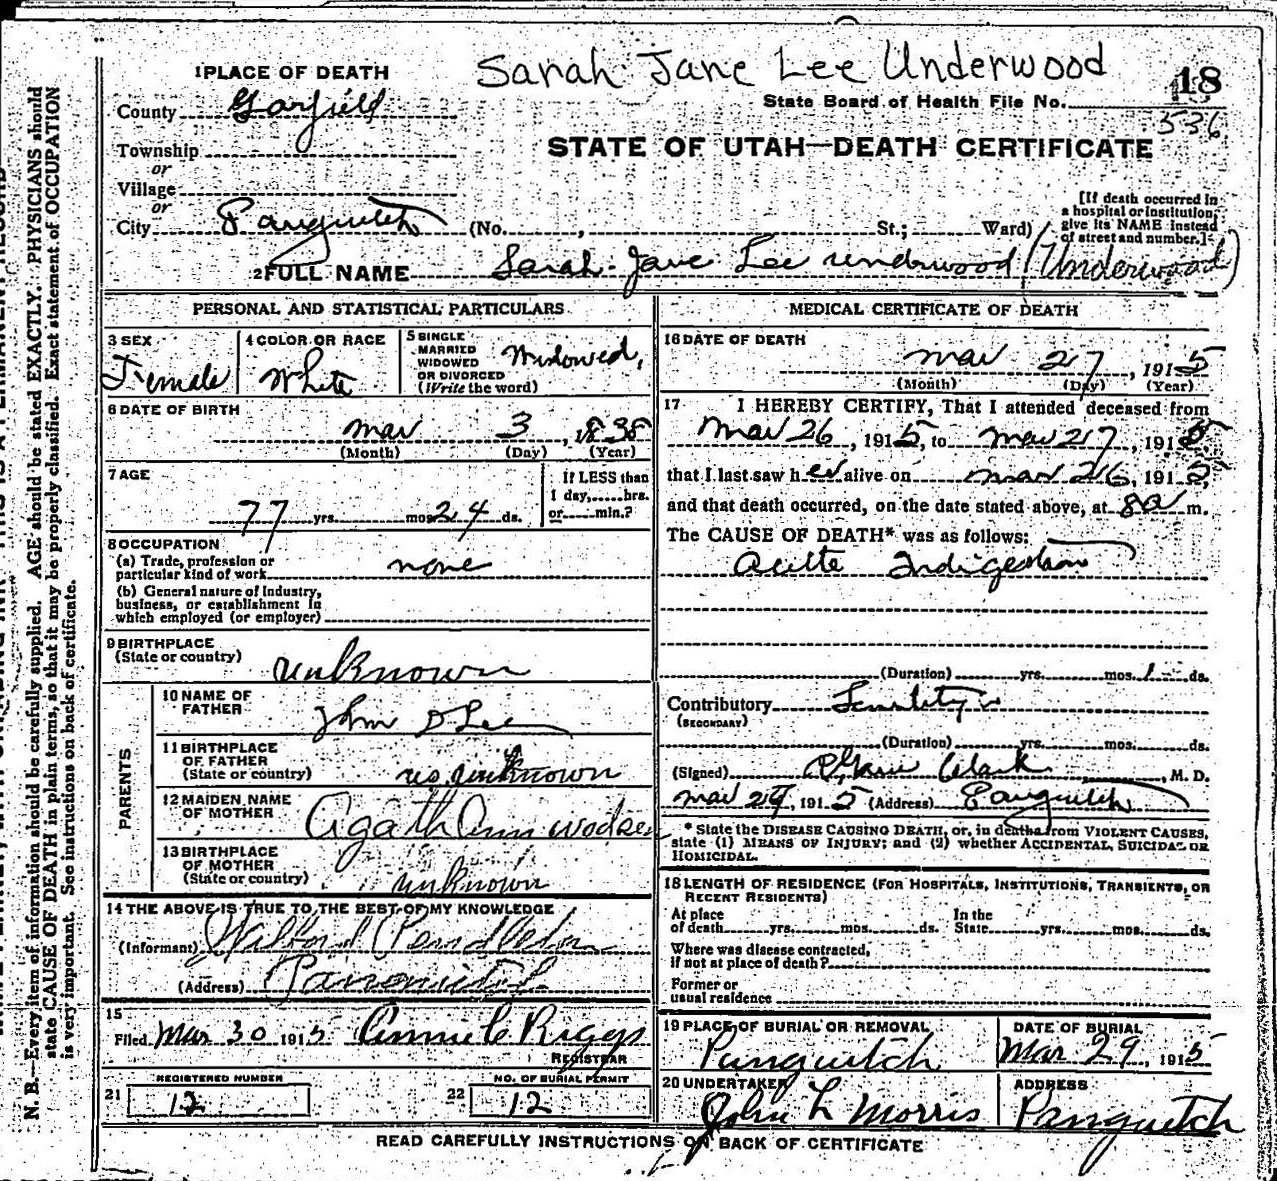 Sarah Jane Lee Underwood
1 PLACE OF DEATH
18
County Garfield
State Board of Health File No.
536
Township
or
STATE OF UTAH—DEATH CERTIFICATE
Village
or
City Panguitch (No. , St.; Ward)
[If death occurred in
a hospital or institution,
give its NAME instead
of street and number.]
2 FULL NAME Sarah Jane Lee underwood (Underwood)
PERSONAL AND STATISTICAL PARTICULARS
3 SEX
Female
4 COLOR OR RACE
White
5 SINGLE
MARRIED
WIDOWED
OR DIVORCED
(Write the word)
Widowed,
6 DATE OF BIRTH
mar 3, 1838
(Month) (Day) (Year)
7 AGE
77 yrs. mos. 24 ds.
If LESS than
1 day, hrs.
or min.?
8 OCCUPATION
(a) Trade, profession or
particular kind of work none
(b) General nature of Industry,
business, or establishment in
which employed (or employer)
9 BIRTHPLACE
(State or country) unknown
PARENTS
10 NAME OF
FATHER John D Lee
11 BIRTHPLACE
OF FATHER
(State or country) unknown
12 MAIDEN NAME
OF MOTHER Agath Ann
13 BIRTHPLACE
OF MOTHER
(State or country) unknown
14 THE ABOVE IS TRUE TO THE BEST OF MY KNOWLEDGE
(Informant) Pendleton
(Address)
15
Filed Mar 30 1915 Annie C Riggs
REGISTRAR
REGISTERED NUMBER
21 12
NO. OF BURIAL PERMIT
22 12
MEDICAL CERTIFICATE OF DEATH
16 DATE OF DEATH
mar 27, 1915
(Month) (Day) (Year)
17 I HEREBY CERTIFY, That I attended deceased from
Mar 26, 1915, to mar 27, 1915
that I last saw her alive on mar 26, 1915,
and that death occurred, on the date stated above, at 8 a m.
The CAUSE OF DEATH* was as follows:
Acute Indigestion
(Duration) yrs. mos. 1 ds.
Contributory Senility
(SECONDARY)
(Duration) yrs. mos. ds.
(Signed) Clark, M. D.
mar 29, 1915 (Address) Panguitch
* State the DISEASE CAUSING DEATH, or, in deaths from VIOLENT CAUSES,
state (1) MEANS OF INJURY; and (2) whether ACCIDENTAL, SUICIDAL OR
HOMICIDAL.
18 LENGTH OF RESIDENCE (FOR HOSPITALS, INSTITUTIONS, TRANSIENTS, OR
RECENT RESIDENTS)
At place
of death yrs. mos. ds.
In the
State yrs. mos. ds.
Where was disease contracted,
if not at place of death?
Former or
usual residence
19 PLACE OF BURIAL OR REMOVAL
Panguitch
DATE OF BURIAL
Mar 29, 1915
20 UNDERTAKER
John L Morris
ADDRESS
Panguitch
READ CAREFULLY INSTRUCTIONS ON BACK OF CERTIFICATE
N. B.—Every item of information should be carefully supplied. AGE should be stated EXACTLY. PHYSICIANS should
state CAUSE OF DEATH in plain terms, so that it may be properly classified. Exact statement of OCCUPATION
is very important. See instructions on back of certificate.